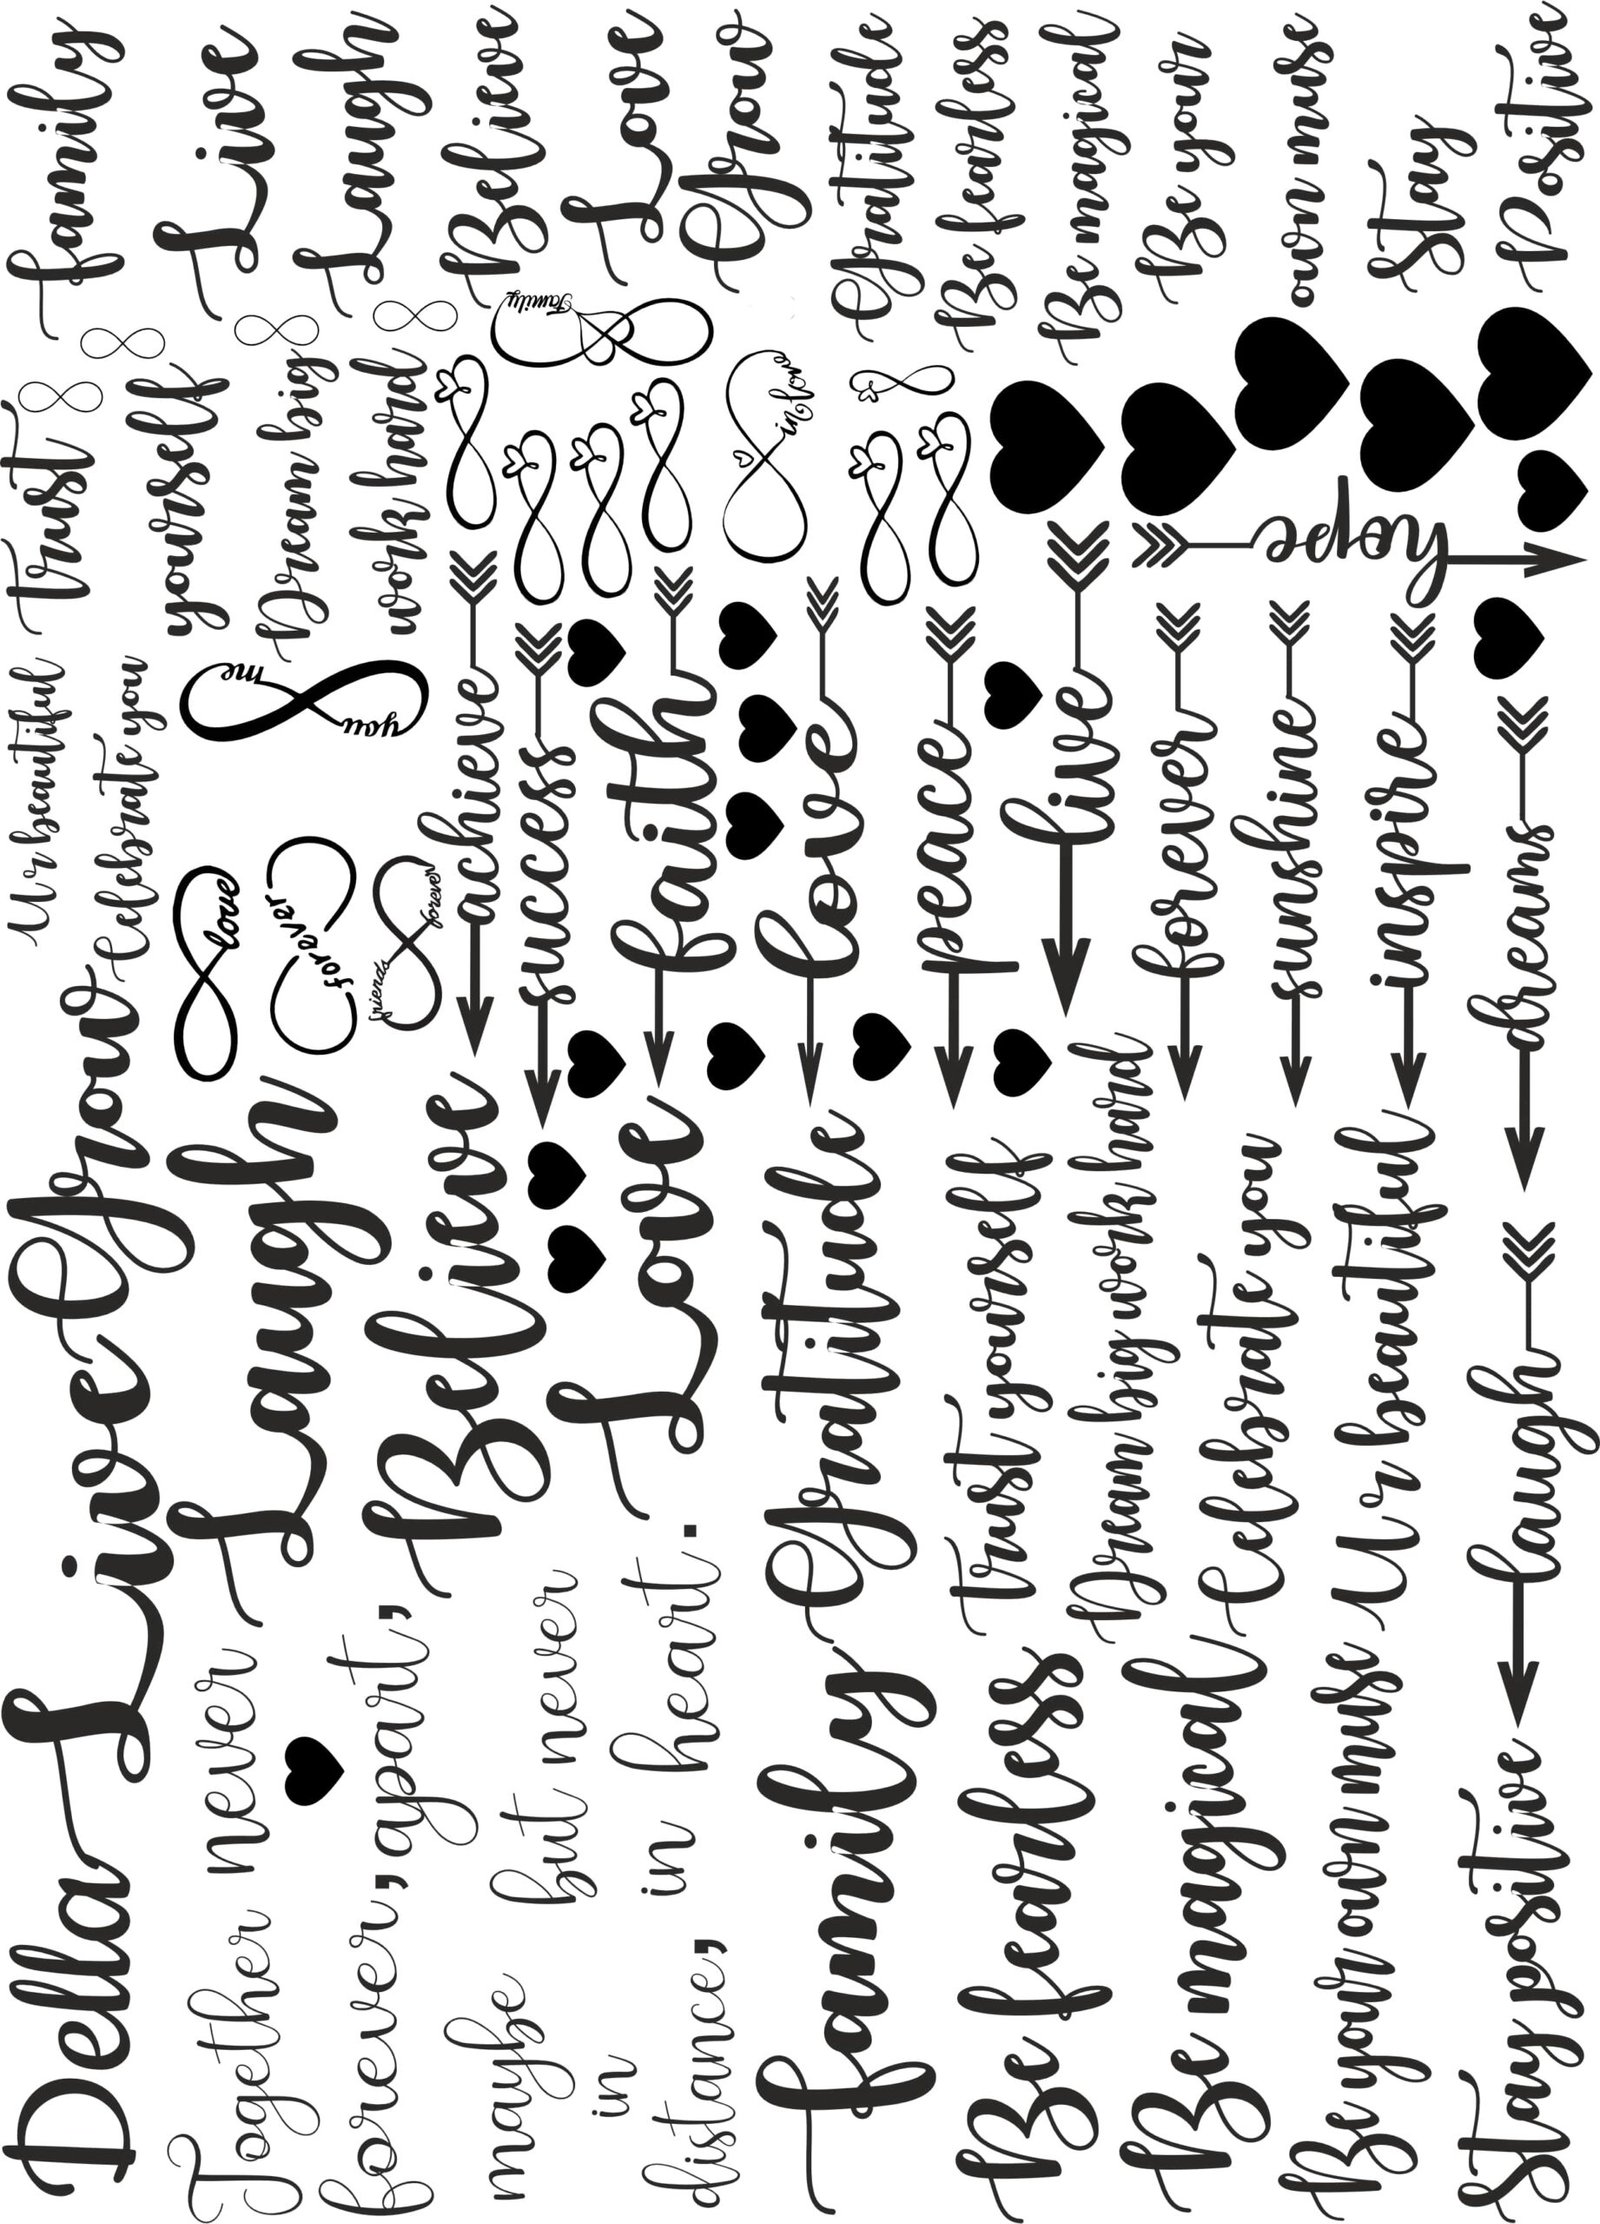 Della Live Grow
Together never
forever, apart,
maybe but never
in in heart.
distance,
Laugh
Believe
Love
family Gratitude
Be fearless
Trust yourself
Be magical
Dream big work hard
Celebrate you
Be your own muse
U r beautiful
Stay positive
laugh
dreams
love
forever
friends forever
achieve
success
faith
love
peace
live
forever
sunshine
inspire
hope
U r beautiful
Celebrate you
me
you
Trust
yourself
Dream big
work hard
Family
in love
family
Live
Laugh
Believe
Love
Grow
Gratitude
Be fearless
Be magical
Be your
own muse
Stay
Positive